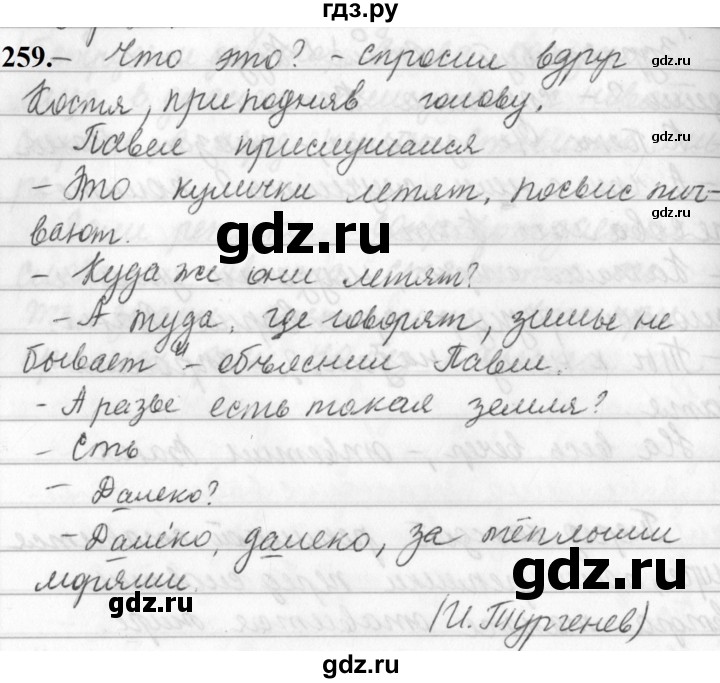 гдз.ру
259. - Что это? - спросил вдруг
gdz.ru
Костя, приподняв голову.
gdz.ru
Павел прислушался
- Это кулички летят, посвисты-
gdz.ru
вают.
gdz.ru
- Куда же они летят?
- А туда, где говорят, зимы не
gdz.ru
бывает", - объяснил Павел.
- А разве есть такая земля?
gdz.ru
- Сть
- Далеко?
gdz.ru
- Далёко, далеко, за тёплыми
gdz.ru
морями.
gdz.ru
(И. Тургенев)
gdz.ru